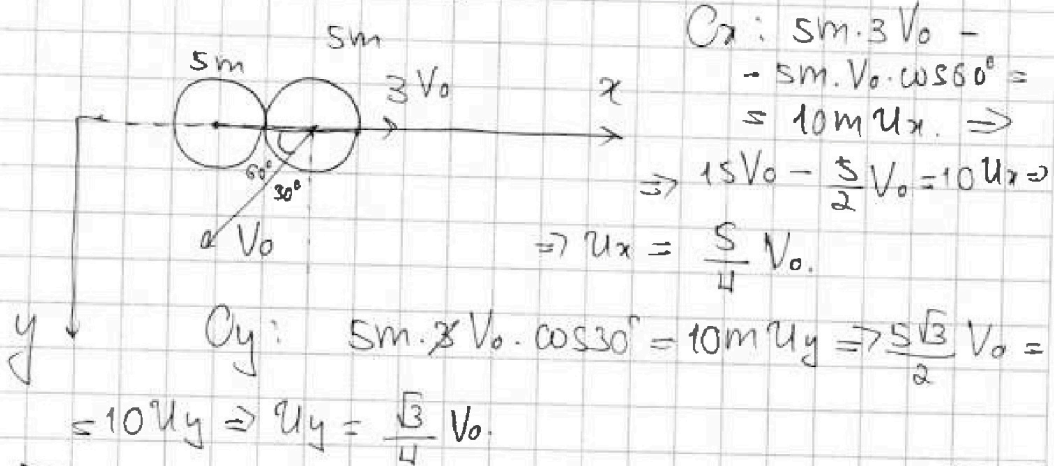 5m 5m
3 V₀ x
60°
30°
V₀
y
Ox: 5m·3V₀ -
- 5m·V₀·cos60° =
= 10m Ux. ⇒
⇒ 15V₀ - 5/2 V₀ = 10Ux ⇒
⇒ Ux = 5/4 V₀.
Oy: 5m·V₀·cos30° = 10m Uy ⇒ 5√3/2 V₀ =
= 10Uy ⇒ Uy = √3/4 V₀.